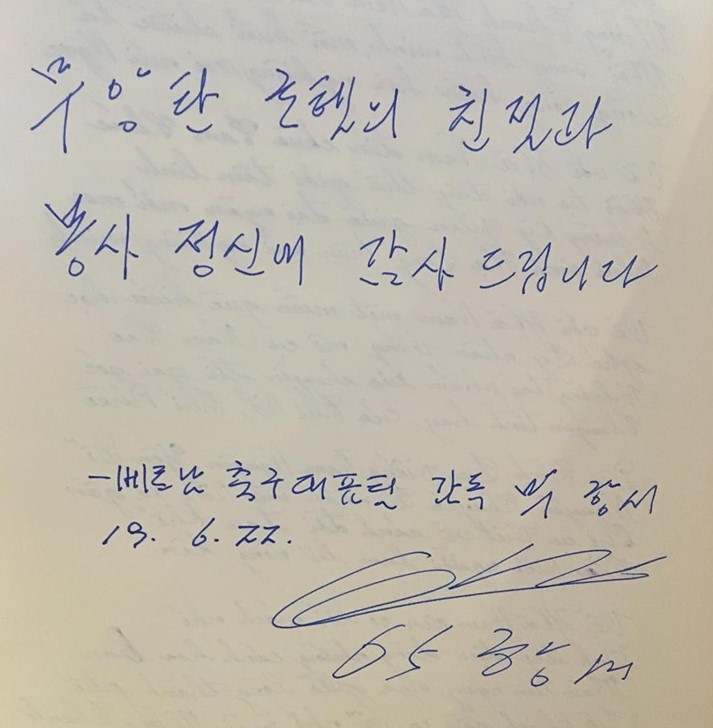 무엉탄 호텔의 친절과
봉사 정신에 감사 드립니다
-베트남 축구대표팀 감독 박 항서
19. 6. 22.
박 항서